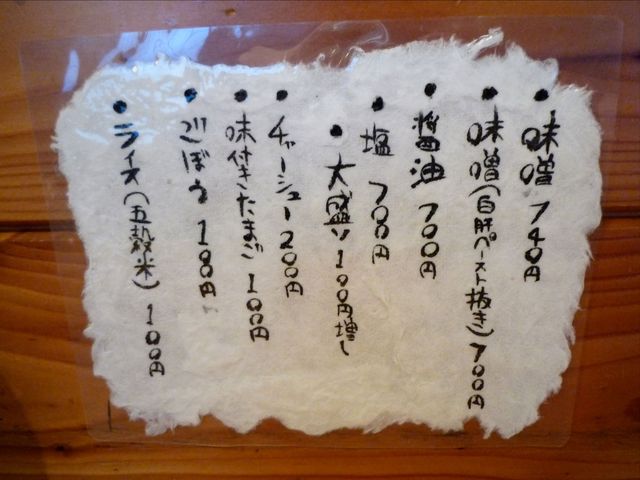 • 味噌 740円
• 味噌(白肝ペースト抜き)700円
• 醤油 700円
• 塩 700円
• 大盛り 100円増し
• チャーシュー 200円
• 味付きたまご 100円
• ごぼう 100円
• ライス(五穀米) 100円